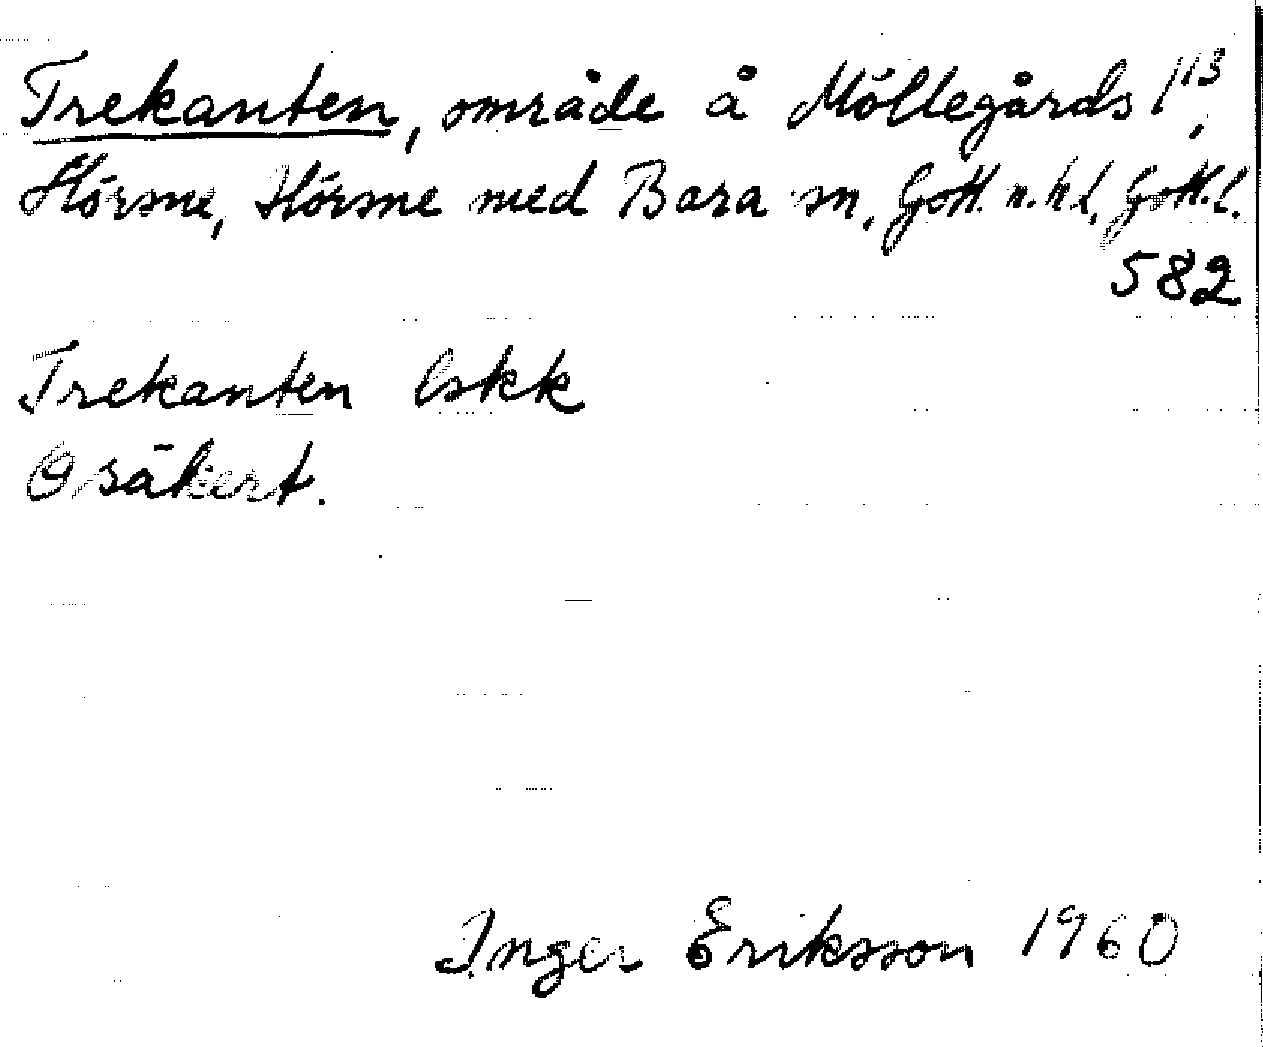 Trekanten, område å Möllegårds 1¹³,
Hörsne, Hörsne med Bara sn, Gotl. n. hd, Gotl. l.
582
Trekanten Eskk
Osäkert.
Inger Eriksson 1960